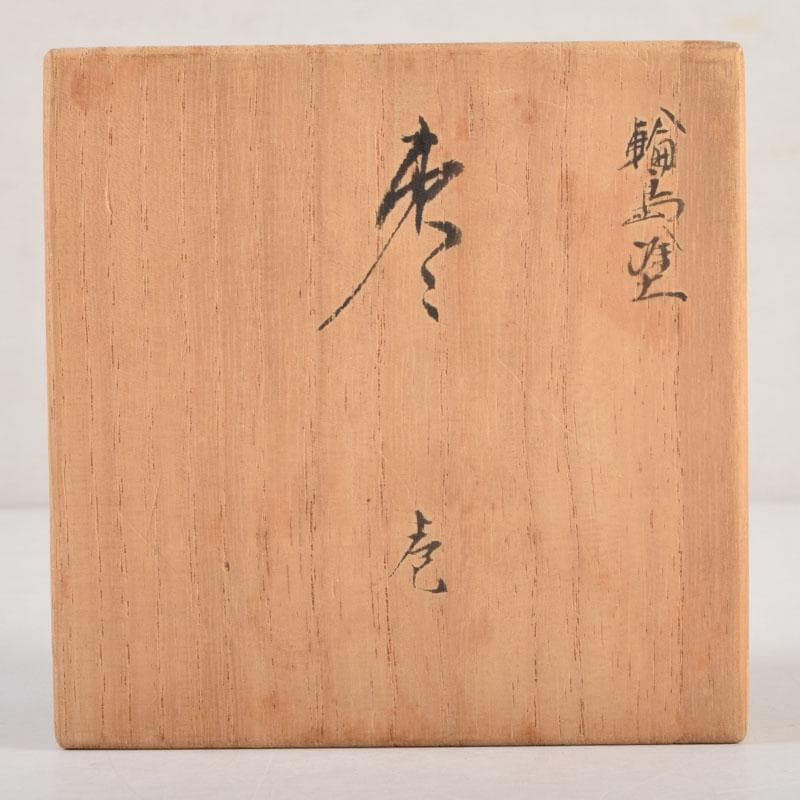 輪島塗
棗
壱